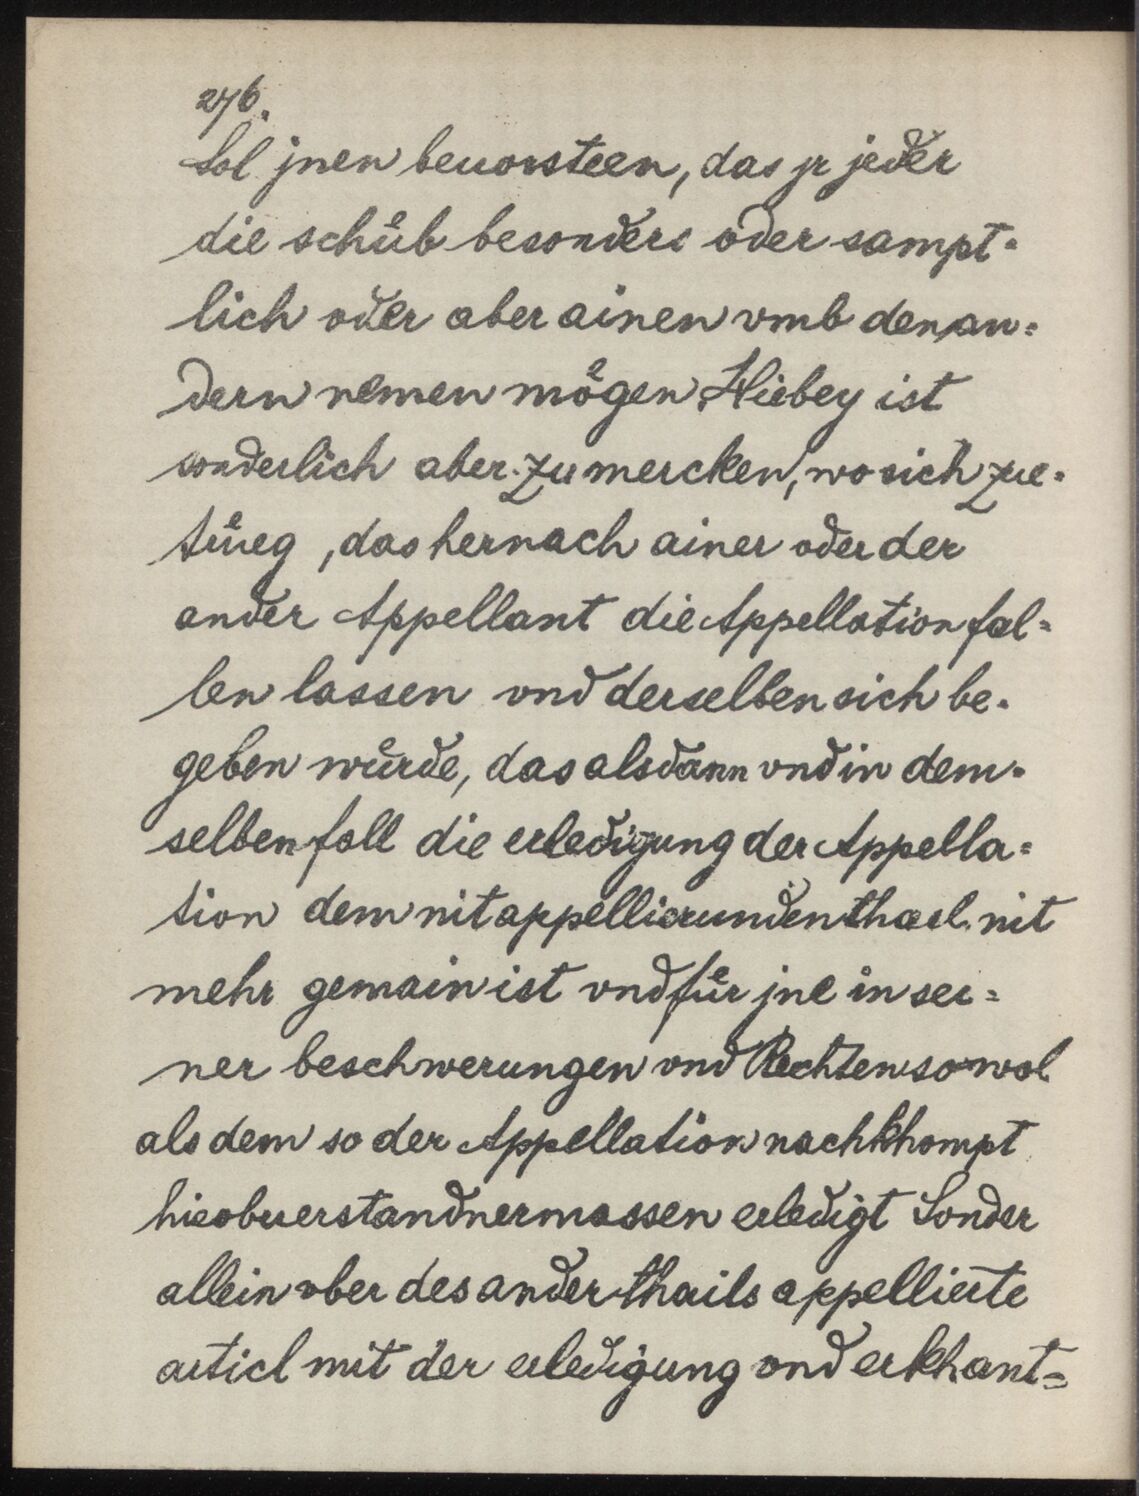 276.
Sol jnen beuorsteen, das jr jeder
die schüb besonders oder sampt=
lich oder aber ainen vmb den an=
dern nemen mögen. Hiebey ist
sonderlich aber zu mercken, wo sich zue=
trüeg, das hernach ainer oder der
ander Appellant die Appellation fal=
len lassen vnd derselben sich be=
geben würde, das alsdann vnd in dem=
selben fall die erledigung der Appella=
tion dem nit appellierunden thael nit
mehr gemain ist vnd für jne in sei=
ner beschwerungen vnd Rechten so wol
als dem so der Appellation nachkhompt
hieobuerstandnermassen erledigt Sonder
allein ober des ander thails appellierte
articl mit der erledigung vnd erkhant=